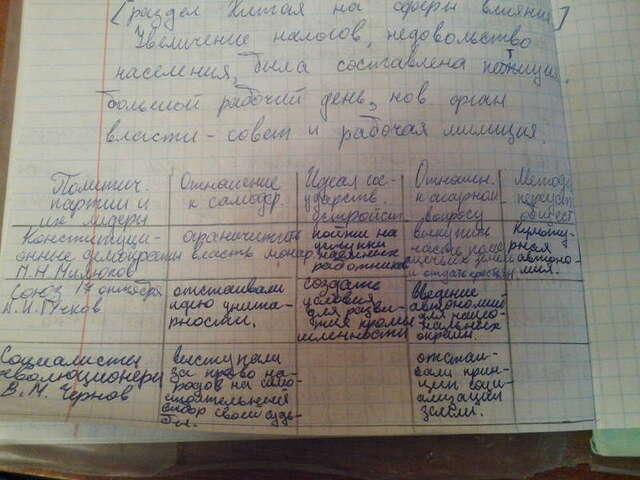 [раздел Китая на сферы влияния]
Увеличение налогов, недовольство
населения, была составлена петиция.
большой рабочий день, нов орган
власти - совет и рабочая милиция.
Политич. партии и их лидеры
Отношение к самодер.
Идеал государств. устройст.
Отношен. к аграрной вопросу
Метод
Конституционные демократы П.Н.Милюков
ограничить власть монар
пойти на уступки наёмных работников
выкупить часть помещичьих земель и отдать крестьян
Культурная автономия.
Союз 17 октября А.И.Гучков
отстаивали идею унитарности.
создать условия для развития промышленности
введение автономии для национальных окраин.
Социалисты революционеры В.М. Чернов
выступали за право народов на самостоятельный выбор своей судьбы.
отстаивали принцип социализации земли.